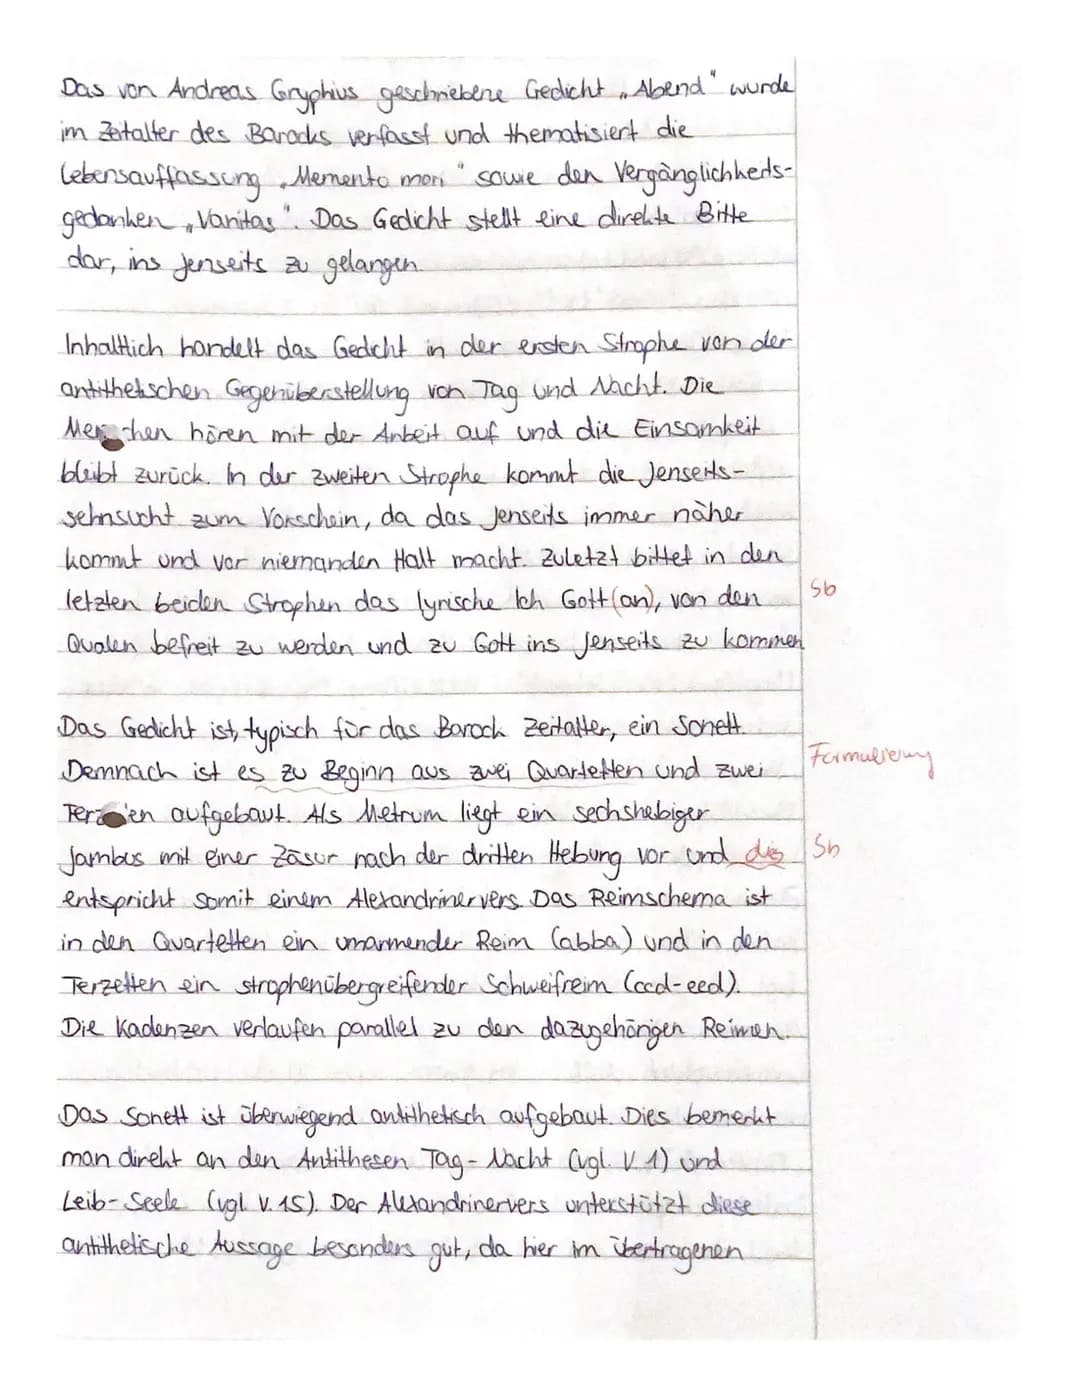 Das von Andreas Gryphius geschriebene Gedicht „Abend" wurde
im Zeitalter des Barocks verfasst und thematisiert die
Lebensauffassung „Memento mori" sowie den Vergänglichkeits-
gedanken „Vanitas". Das Gedicht stellt eine direkte Bitte
dar, ins Jenseits zu gelangen.
Inhaltlich handelt das Gedicht in der ersten Strophe von der
antithetischen Gegenüberstellung von Tag und Nacht. Die
Menschen hören mit der Arbeit auf und die Einsamkeit
bleibt zurück. In der zweiten Strophe kommt die Jenseits-
sehnsucht zum Vorschein, da das Jenseits immer näher
kommt und vor niemanden Halt macht. Zuletzt bittet in den
letzten beiden Strophen das lyrische Ich Gott (an), von den Sb
Qualen befreit zu werden und zu Gott ins Jenseits zu kommen
Das Gedicht ist, typisch für das Barock Zeitalter, ein Sonett.
Demnach ist es zu Beginn aus zwei Quartetten und zwei Formulierung
Terzen aufgebaut. Als Metrum liegt ein sechshebiger
Jambus mit einer Zäsur nach der dritten Hebung vor und dies Sb
entspricht somit einem Alexandrinervers. Das Reimschema ist
in den Quartetten ein umarmender Reim (abba) und in den
Terzetten ein strophenübergreifender Schweifreim (ccd-eed).
Die Kadenzen verlaufen parallel zu den dazugehörigen Reimen.
Das Sonett ist überwiegend antithetisch aufgebaut. Dies bemerkt
man direkt an den Antithesen Tag-Nacht (vgl. V.1) und
Leib-Seele (vgl. V.15). Der Alexandrinervers unterstützt diese
antithetische Aussage besonders gut, da hier im übertragenen